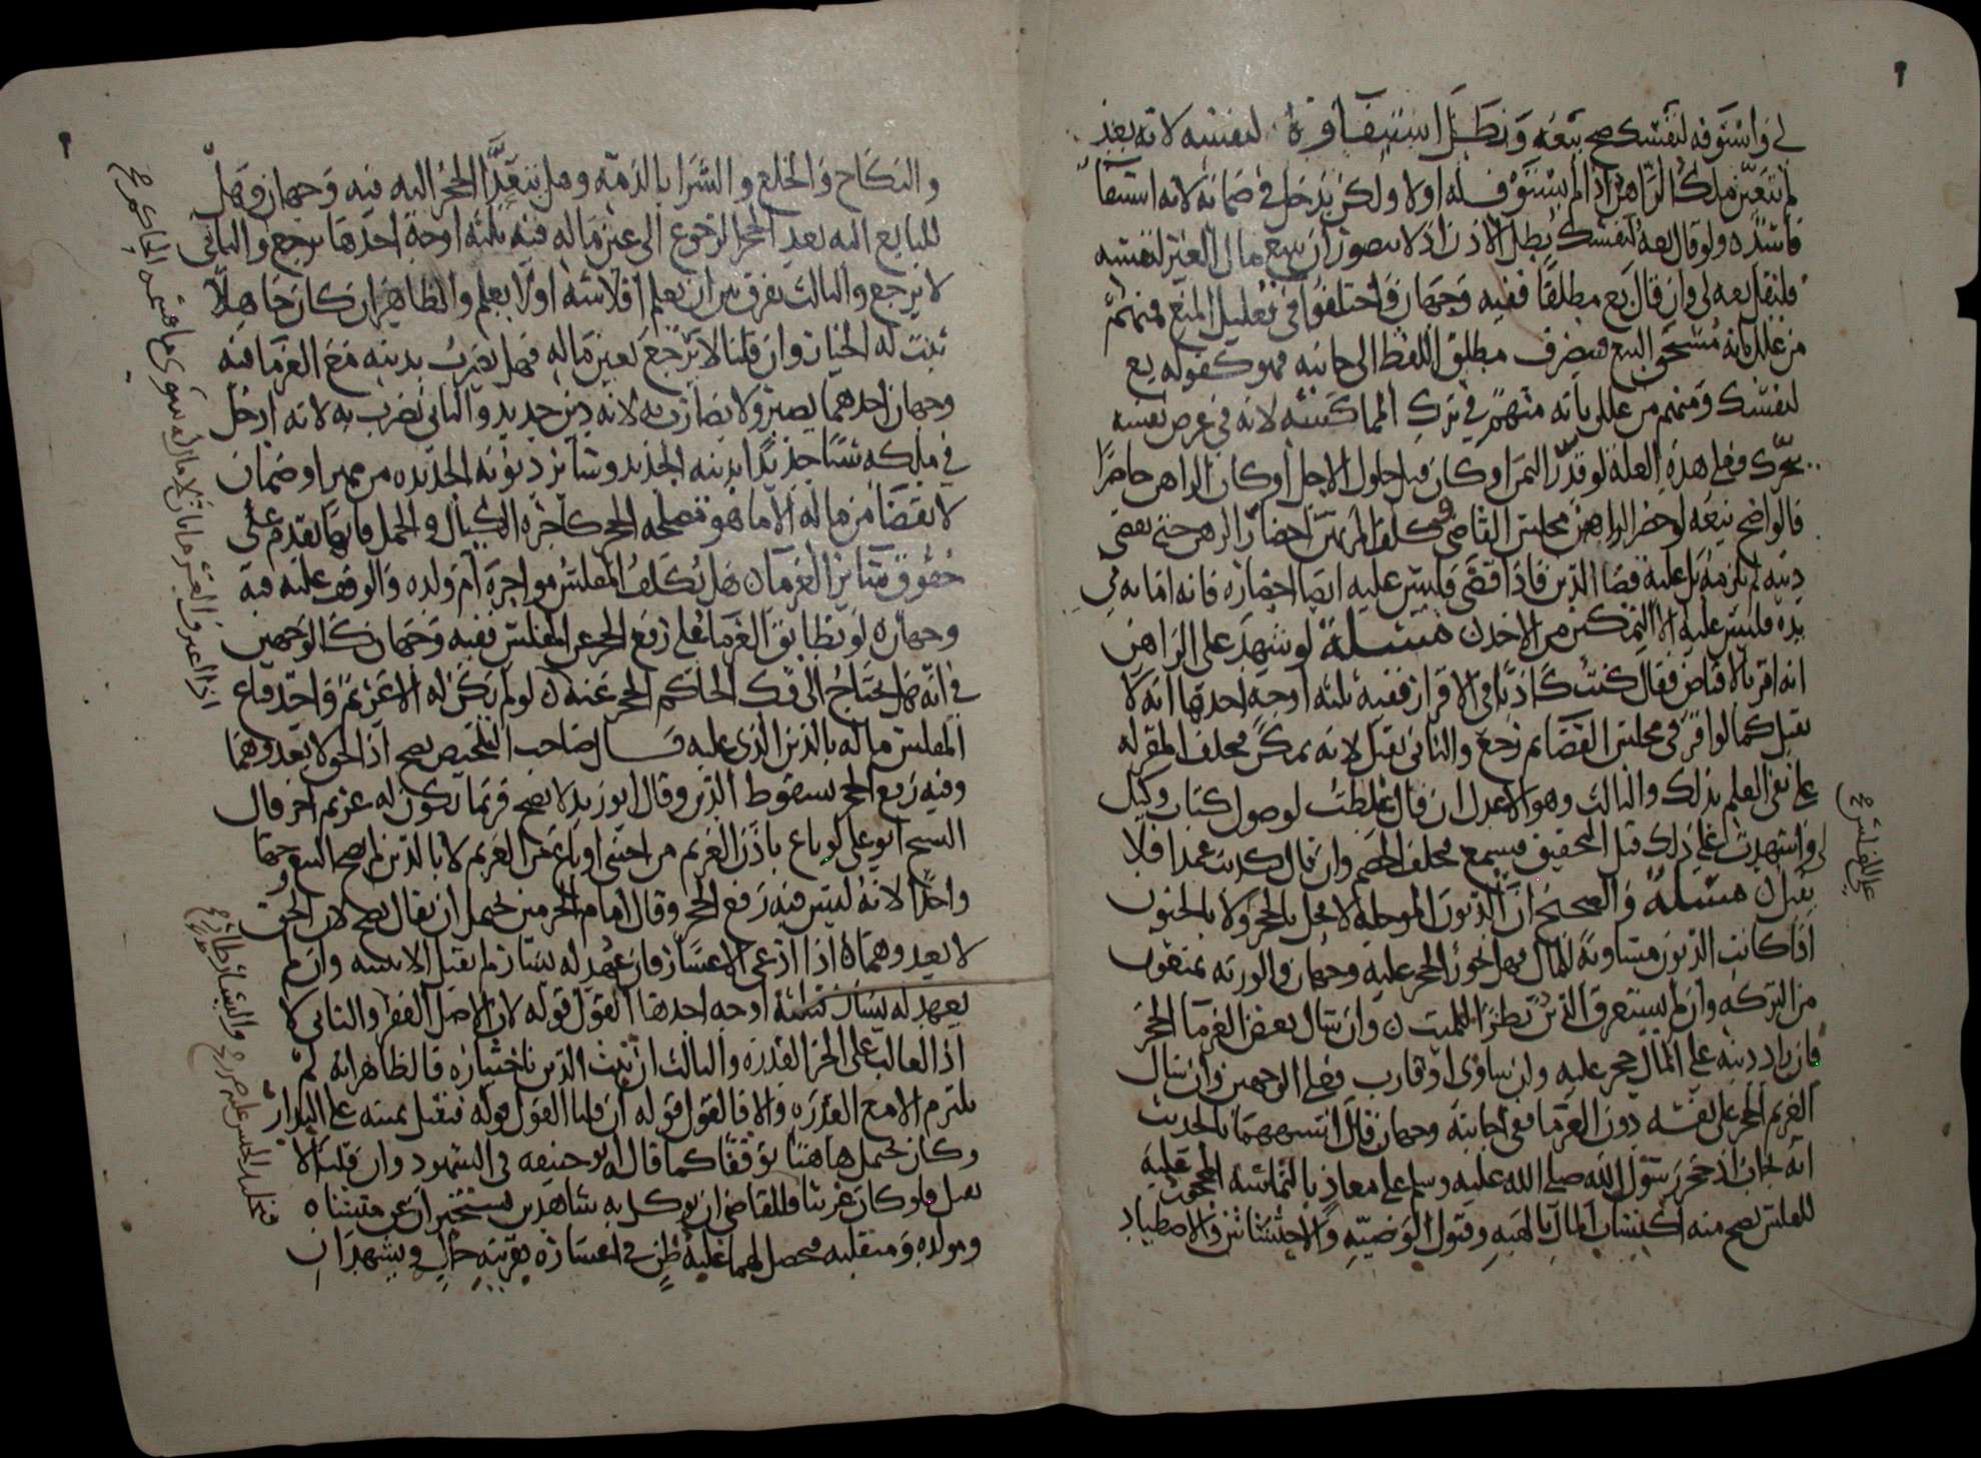 لي واستوفه لنفسك صح بيعه وبطل استيفاؤه لنفسه لانه بعد
لم يتعين ملك الراهن اذا لم يستوف له اولا ولكن يدخل في ضمانه لانه استيفا
فاسد ولو قال بعه لنفسك بطل الاذن اذ لا يتصور ان يبيع مال الغير لنفسه
فليقل بعه لي وان قال بع مطلقا ففيه وجهان واختلفوا في تعليل المنع فمنهم
من علل بانه مستحق البيع فيصرف مطلق اللفظ الى جانبه فهو كقوله بع
لنفسك ومنهم من علل بانه متهم في ترك المماكسة لانه في غرض نفسه
يتحرك فعلى هذه العلة لو قدر الثمن او كان قبل حلول الاجل او كان الراهن حاضرا
فالواضح بيعه لو حضر الراهن مجلس القاضي وكلف المرتهن احضار الرهن حتى يقضي
دينه لم يلزمه بل عليه قضا الدين فاذا قضى فليس عليه ايضا احضاره فانه امانة في
يده فليس عليه الا التمكين من الاخذ مسئلة لو شهد على الراهن
انه اقر بالاقباض فقال كنت كاذبا في الاقرار ففيه ثلثة اوجه احدها انه لا
يقبل كما لو اقر في مجلس القضا ثم رجع والثاني يقبل لانه ممكن فيحلف المقر له
على نفي العلم بذلك والثالث وهو الاعدل ان قال غلطت لوصول كتاب وكيل
لي واشهدت على ذلك قبل التحقيق فيسمع فيحلف الخصم وان قال كذبت عمدا فلا
يقبل مسئلة والصحيح ان الديون الموجلة لا تحل بالحجر ولا بالجنون
اذا كانت الديون مساوية للمال فهل يجوز الحجر عليه وجهان والورثة يمنعون
من التركة وان لم يستغرق الدين نظرا للميت وان سال بعض الغرما الحجر
فان زاد دينه على المال حجر عليه وان ساوى او قارب فعلى الوجهين وان سال
الغريم الحجر على نفسه دون الغرما ففي اجابته وجهان قلت اشبههما بالحديث
انه يجاب اذ حجر رسول الله صلى الله عليه وسلم على معاذ بالتماسه المحجور عليه
للفلس يصح منه اكتساب المال بالهبة وقبول الوصية والاحتشاش والاصطياد
على المفلس
والنكاح والخلع والشرا بالذمة وهل يتعدى الحجر اليه فيه وجهان وهل
للبايع اليه بعد الحجر الرجوع الى عين ماله فيه ثلثة اوجه احدها يرجع والثاني
لا يرجع والثالث يفرق بين ان يعلم افلاسه او لا يعلم والظاهر ان كان جاهلا
ثبت له الخيار وان قلنا لا يرجع بعين ماله فهل يضرب بدينه مع الغرما فيه
وجهان احدهما يصبر ولا يضارب به لانه دين جديد والثاني يضرب به لانه ادخل
في ملكه شيئا جديدا بدينه الجديد وسائر ديونه الجديدة من مهر او ضمان
لا يقضا من ماله الا ما هو مصلحة الحجر كاجرة الكيال والحمال فانها تقدم على
حقوق سائر الغرما هل يكلف المفلس مواجرة ام ولده والوقف عليه فيه
وجهان لو تطابق الغرما على رفع الحجر عن المفلس ففيه وجهان كالوجهين
في انه هل يحتاج الى فك الحاكم الحجر عنه لو لم يكن له الا غريم واحد فباع
المفلس ماله بالدين الذي عليه قال صاحب التلخيص يصح اذ الحق لا يعدوهما
وفيه رفع الحجر بسقوط الدين وقال ابو زيد لا يصح فربما يكون له غريم اخر قال
الشيخ ابو علي لو باع باذن الغريم من اجنبي او باع من الغريم لا بالدين لم يصح البيع وجها
واحدا لانه ليس فيه رفع الحجر وقال امام الحرمين يحتمل ان يقال يصح لان الحق
لا يعدوهما اذا ادعى الاعسار فان عهد له يسار لم يقبل الا ببينة وان لم
يعهد له يسار فثلثة اوجه احدها القول قوله لان الاصل الفقر والثاني لا
اذ الغالب على الحر القدرة والثالث ان ثبت الدين باختياره فالظاهر انه لم
يلتزم الا مع القدرة والا فالقول قوله ان قلنا القول قوله فيقبل يمينه على البدار
وكان يحتمل هاهنا توقفا كما قال ابو حنيفة في الشهود وان قلنا لا
يقبل فلو كان غريبا فللقاضي ان يوكل به شاهدين يستخبران عن منشاه
ومولده ومنقلبه فيحصل لهما غلبة ظن في اعساره بقرينة حال ويشهدان